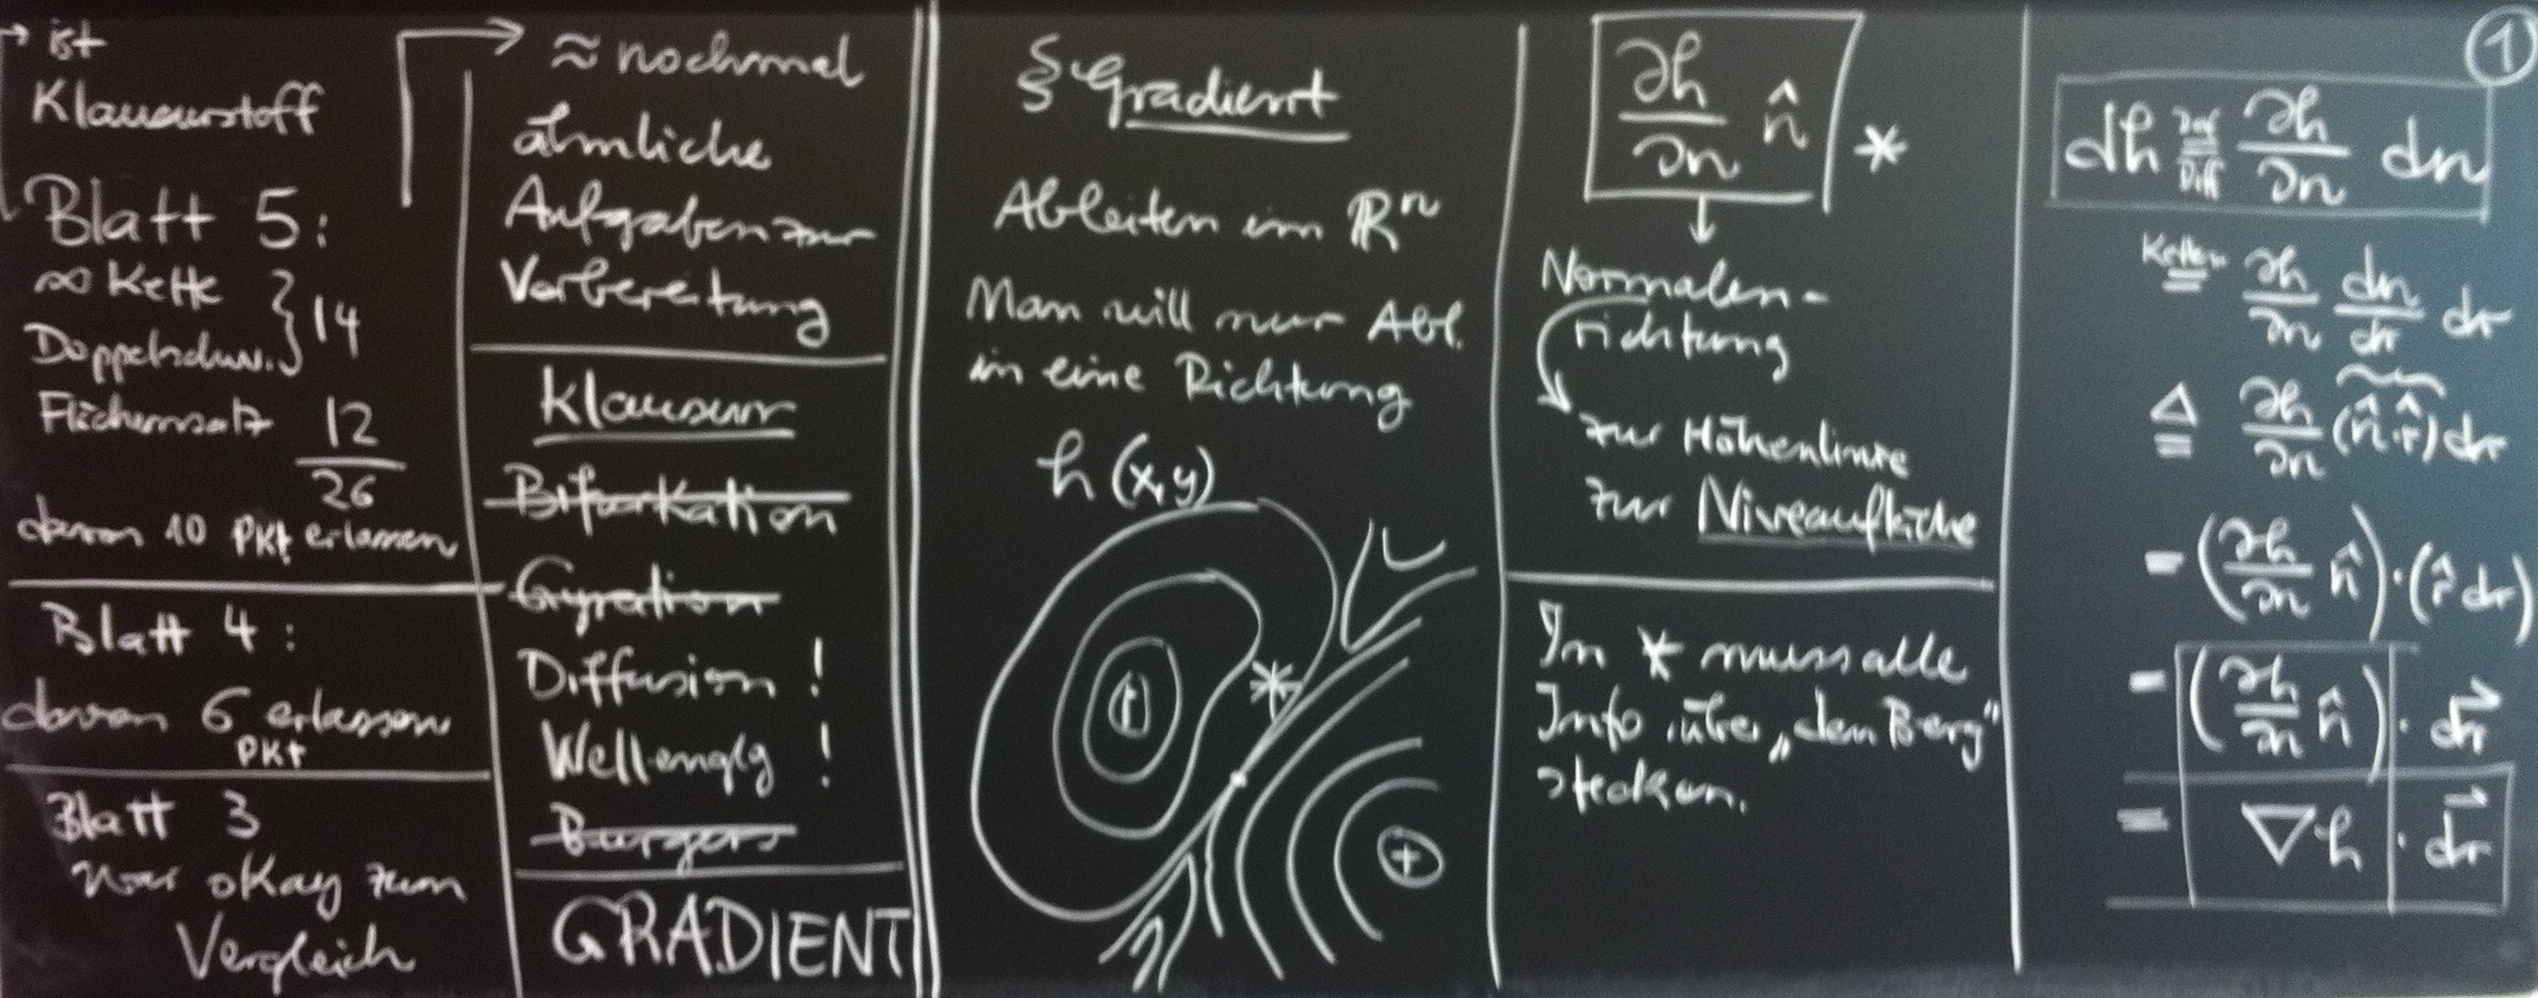 → ist
Klausurstoff
Blatt 5:
∞ Kette
Doppelschw. } 14
Flächensatz 12
26
davon 10 Pkt erlassen
Blatt 4:
davon 6 erlassen
Pkt
Blatt 3
war okay zum
Vergleich
≈ nochmal
ähnliche
Aufgaben zur
Vorbereitung
Klausur
Bifurkation
Gyration
Diffusion !
Wellenglg !
Burgers
GRADIENT
§ Gradient
Ableiten im ℝⁿ
Man will nur Abl.
in eine Richtung
h(x,y)
*
+
∂h/∂n n̂ *
↓
Normalen-
richtung
zur Höhenlinie
zur Niveaufläche
In * muss alle
Info über „den Berg"
stecken.
①
dh =(Def Diff) ∂h/∂n dn
=(Ketten) ∂h/∂n dn/dr dr
=(△) ∂h/∂n (n̂·r̂) dr
= (∂h/∂n n̂)·(r̂ dr)
= (∂h/∂n n̂)· dr⃗
= ∇h · dr⃗